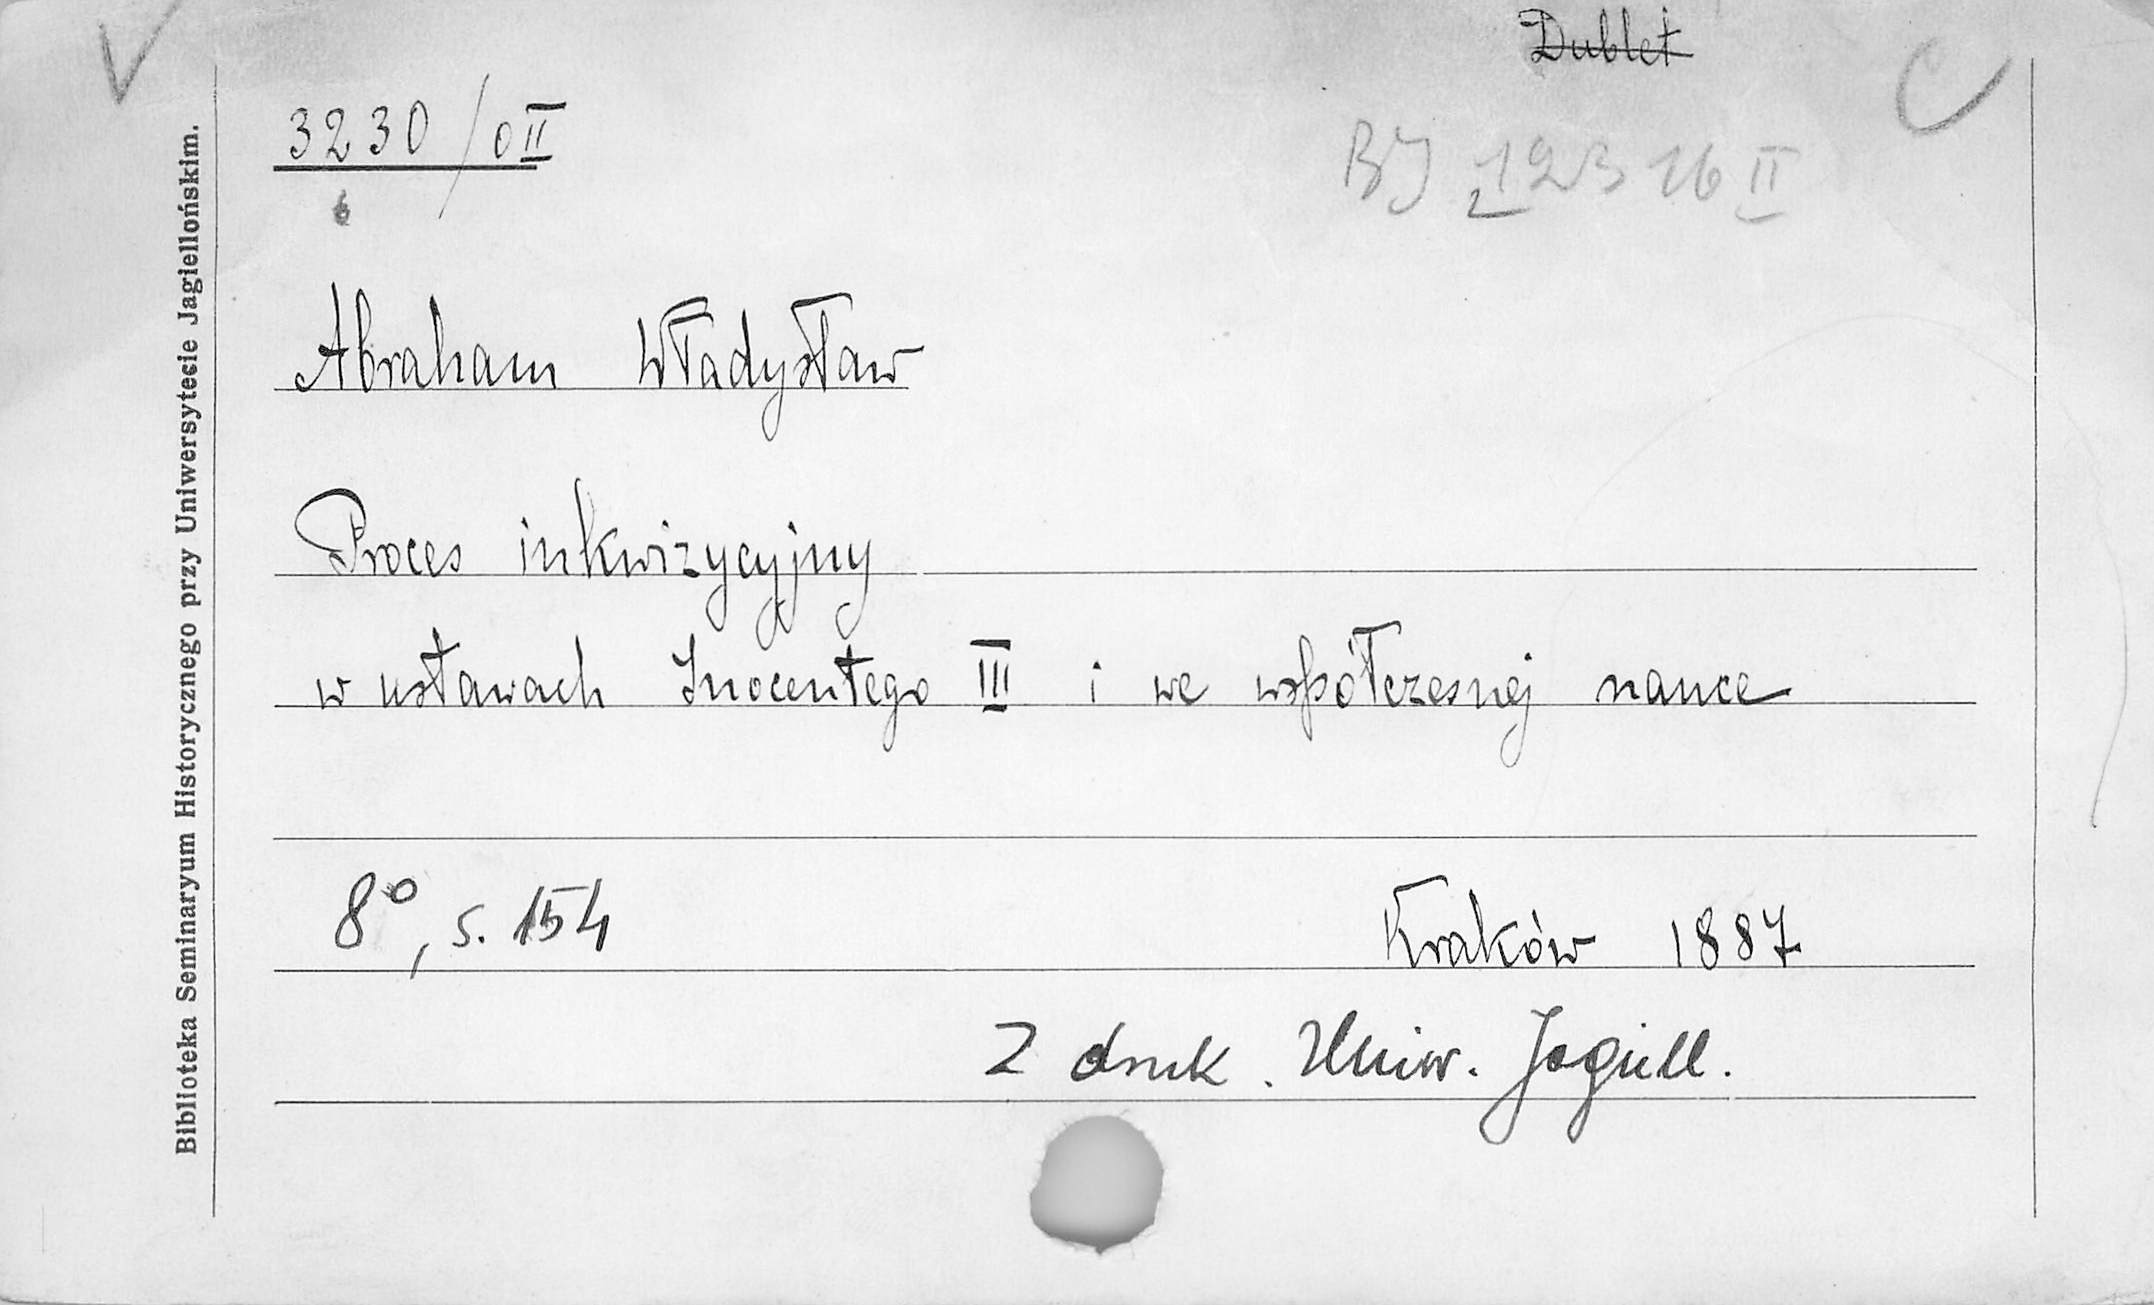 Dublet
3230/0II
BJ 12316 II
6
Abraham Władysław
Proces inkwizycyjny
w ustawach Inocentego III i we współczesnej nauce
8°, s. 154
Kraków 1887
Z druk. Uniw. Jagiell.
Biblioteka Seminaryum Historycznego przy Uniwersytecie Jagiellońskim.